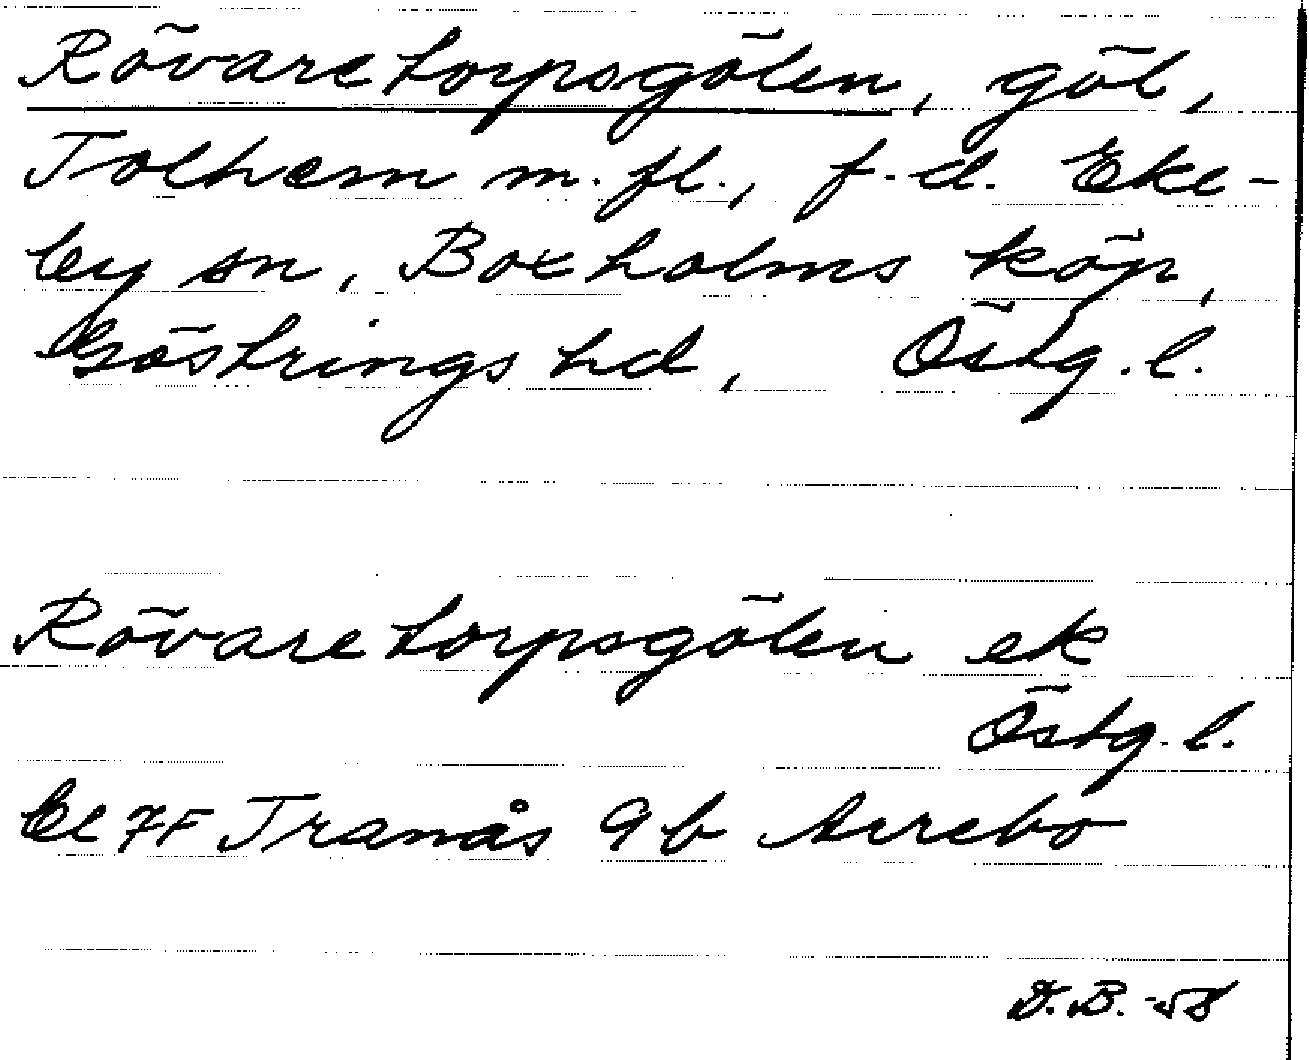 Rövaretorpsgölen, göl,
Tolhem m.fl., f.d. Eke-
by sn, Boxholms köp,
Göstrings hd, Östg.l.
Rövaretorpsgölen ek
Östg.l.
7F Tranås 9b Arrebo
D.B. -58